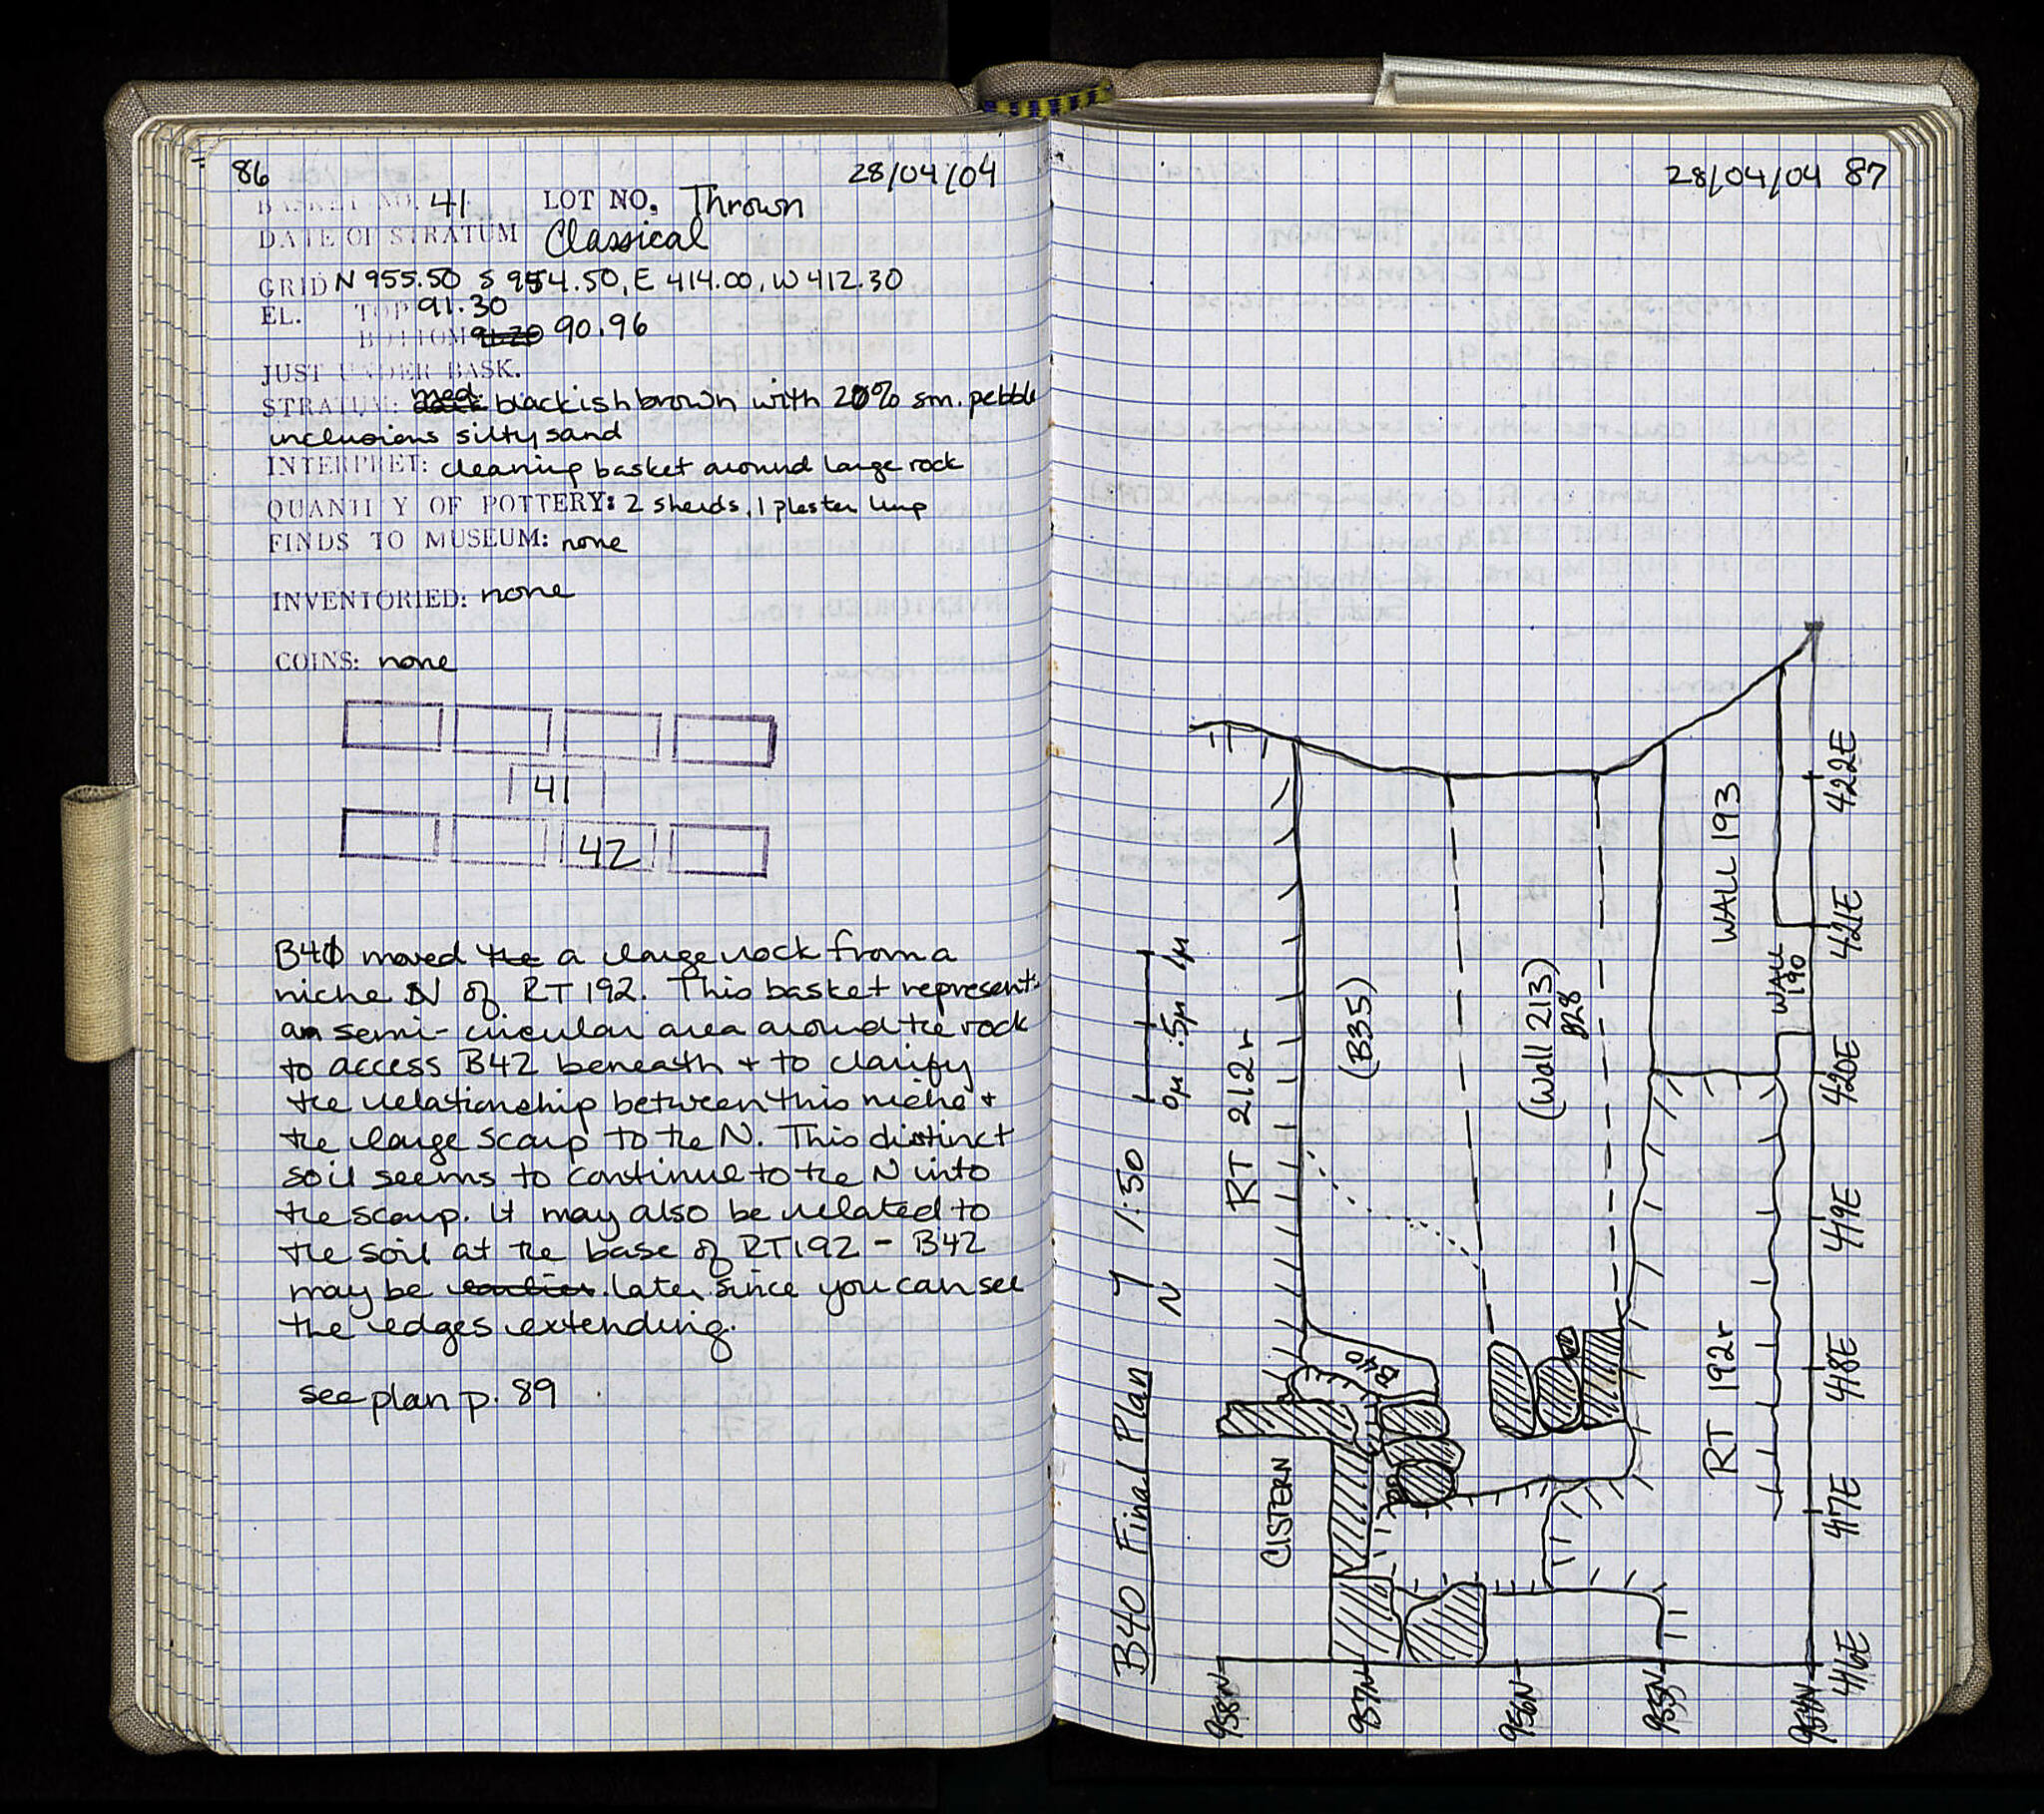 86 28/04/04
BASKET NO. 41 LOT NO. Thrown
DATE OF STRATUM Classical
GRID N 955.50 S 954.50, E 414.00, W 412.30
EL. TOP 91.30
BOTTOM 90.96
JUST UNDER BASK.
STRATUM: med. blackish brown with 20% sm. pebble
inclusions silty sand
INTERPRET: cleaning basket around large rock
QUANTITY OF POTTERY: 2 sherds, 1 plaster lump
FINDS TO MUSEUM: none
INVENTORIED: none
COINS: none
41
42
B41 moved the a large rock from a
niche N of RT 192. This basket represents
a semi-circular area around the rock
to access B42 beneath + to clarify
the relationship between this niche +
the large scarp to the N. This distinct
soil seems to continue to the N into
the scarp. It may also be related to
the soil at the base of RT192 - B42
may be earlier later since you can see
the edges extending.
see plan p. 89
28/04/04 87
B40 Final Plan N 1:50 0M .5M 1M
CISTERN
RT 212r
B40
(B35)
(Wall 213)
B28
RT 192r
WALL 193
WALL
190
958N
957N
956N
955N
954N
416E 417E 418E 419E 420E 421E 422E